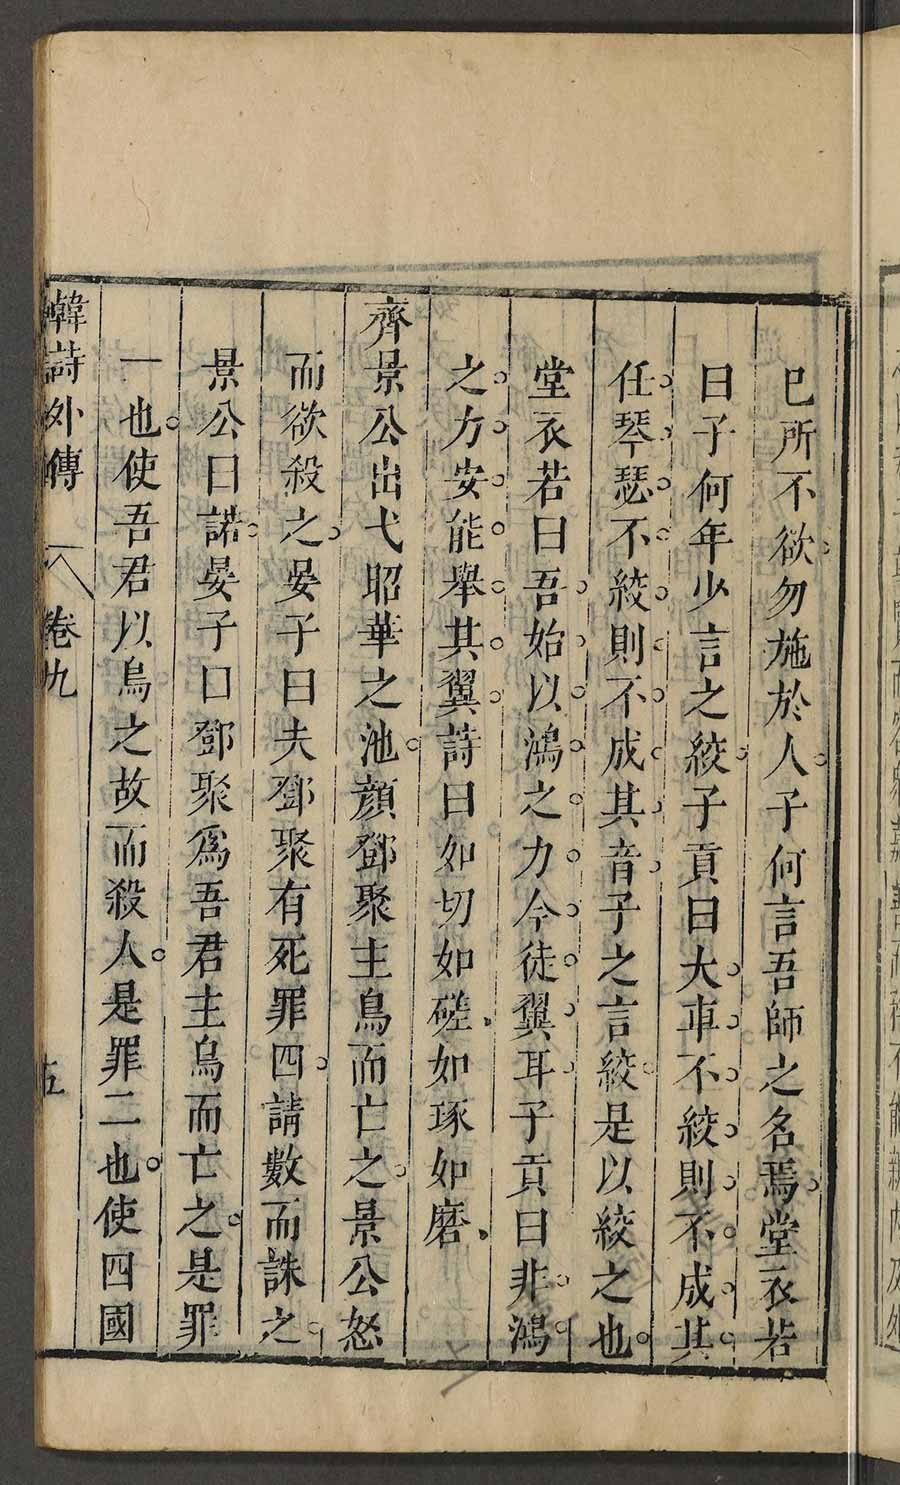 已所不欲勿施於人子何言吾師之名焉堂衣若
曰子何年少言之絞子貢曰大車不絞則不成其
任琴瑟不絞則不成其音子之言絞是以絞之也
堂衣若曰吾始以鴻之力今徒翼耳子貢曰非鴻
之力安能舉其翼詩曰如切如磋如琢如磨
齊景公出弋昭華之池顏鄧聚主鳥而亡之景公怒
而欲殺之晏子曰夫鄧聚有死罪四請數而誅之
景公曰諾晏子曰鄧聚爲吾君主鳥而亡之是罪
一也使吾君以鳥之故而殺人是罪二也使四國
韓詩外傳 卷九 五